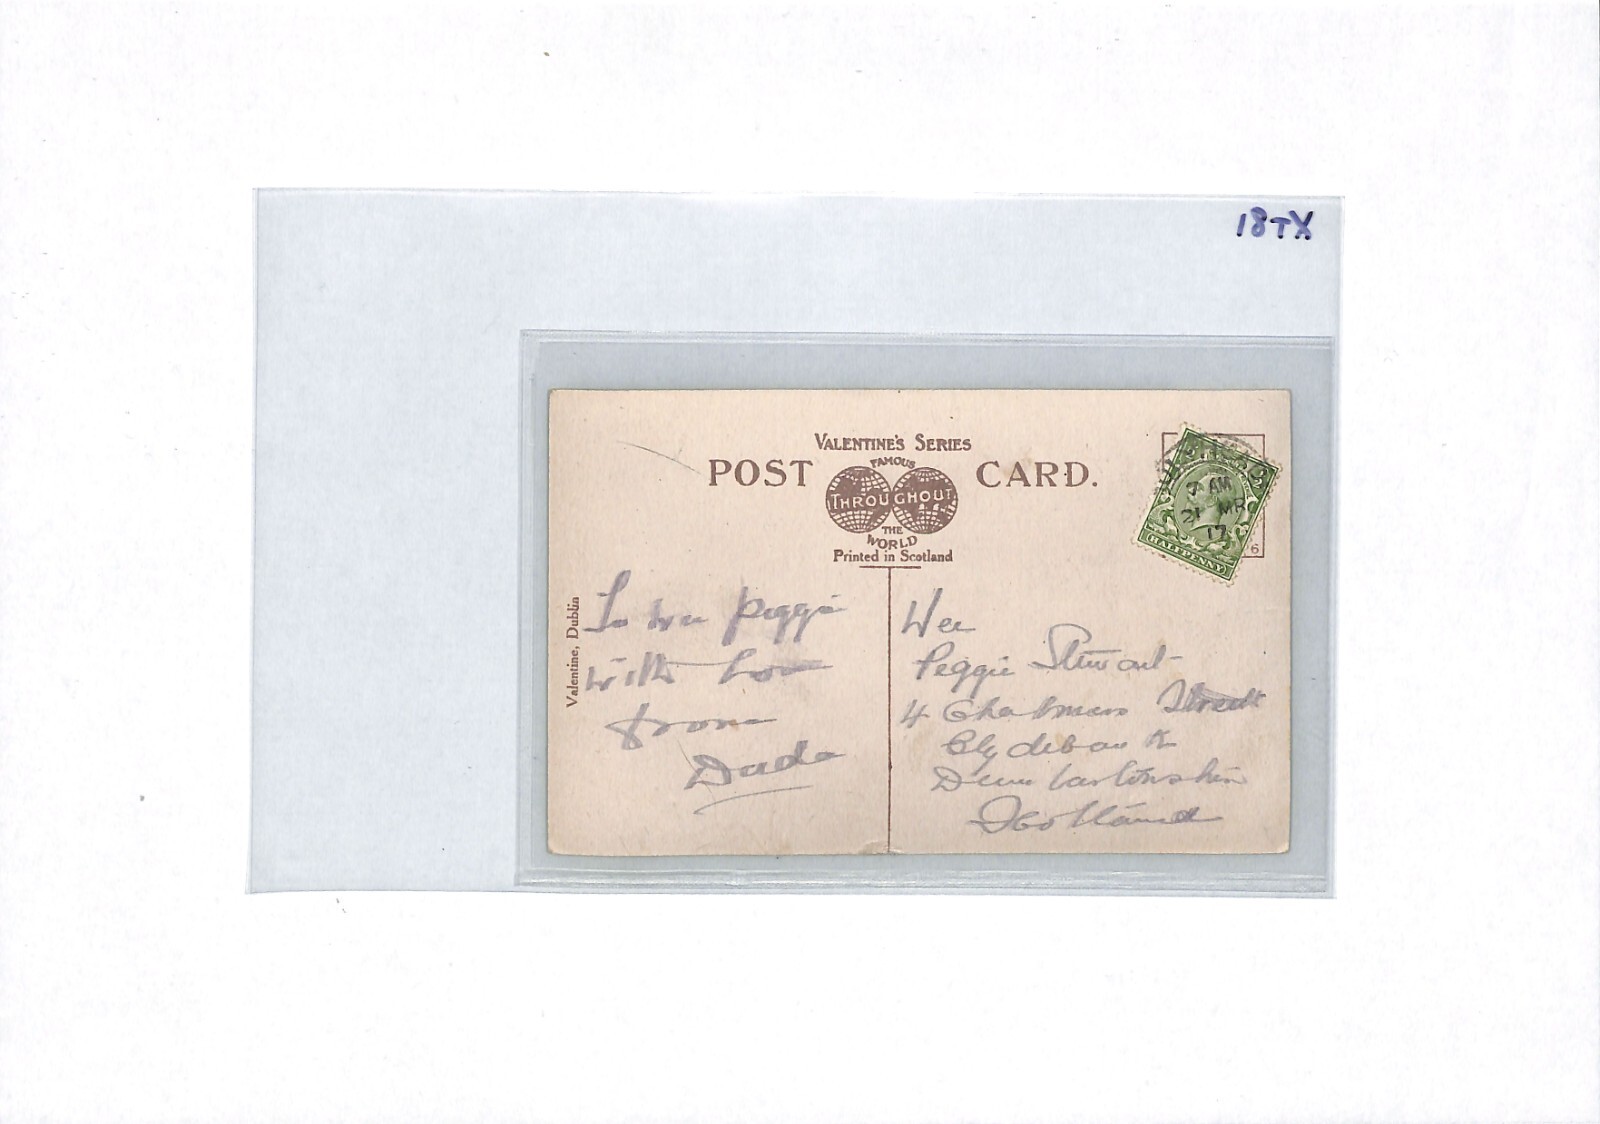 18TX
VALENTINE'S SERIES
POST CARD.
FAMOUS
THROUGHOUT
THE
WORLD
Printed in Scotland
9 AM
21 MR
17
HALFPENNY
6
Valentine, Dublin
To Wee Peggie
with Love
from
Dada
Wee
Peggie Stewart
4 Chalmers Street
Clydebank
Dumbartonshire
Scotland